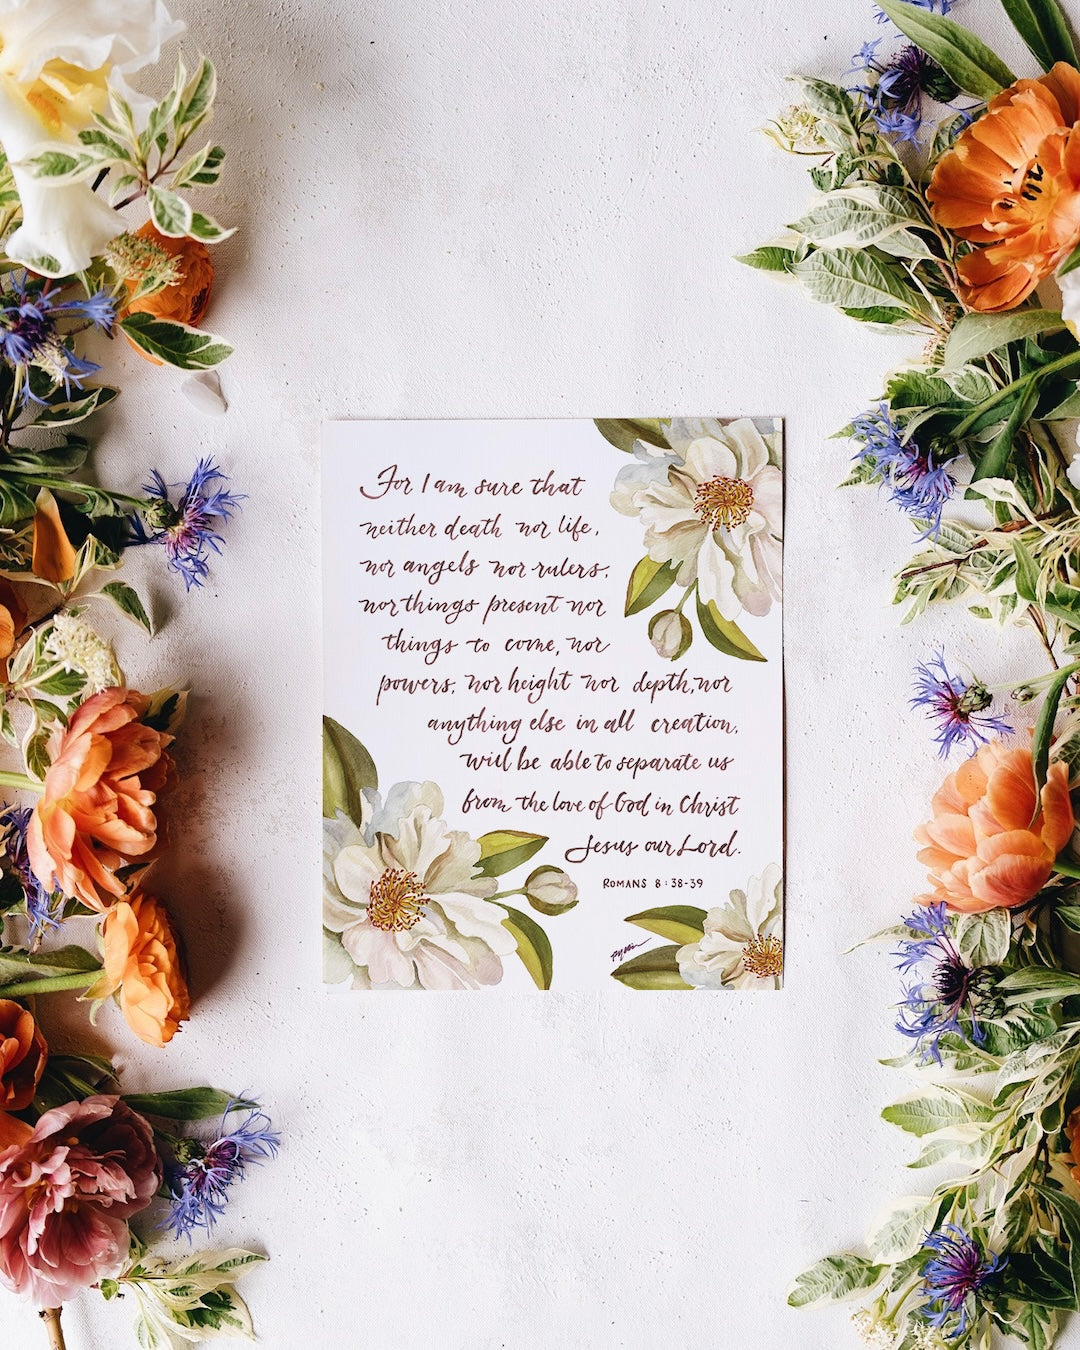 For I am sure that
neither death nor life,
nor angels nor rulers,
nor things present nor
things to come, nor
powers, nor height nor depth, nor
anything else in all creation,
will be able to separate us
from the love of God in Christ
Jesus our Lord.
ROMANS 8:38-39